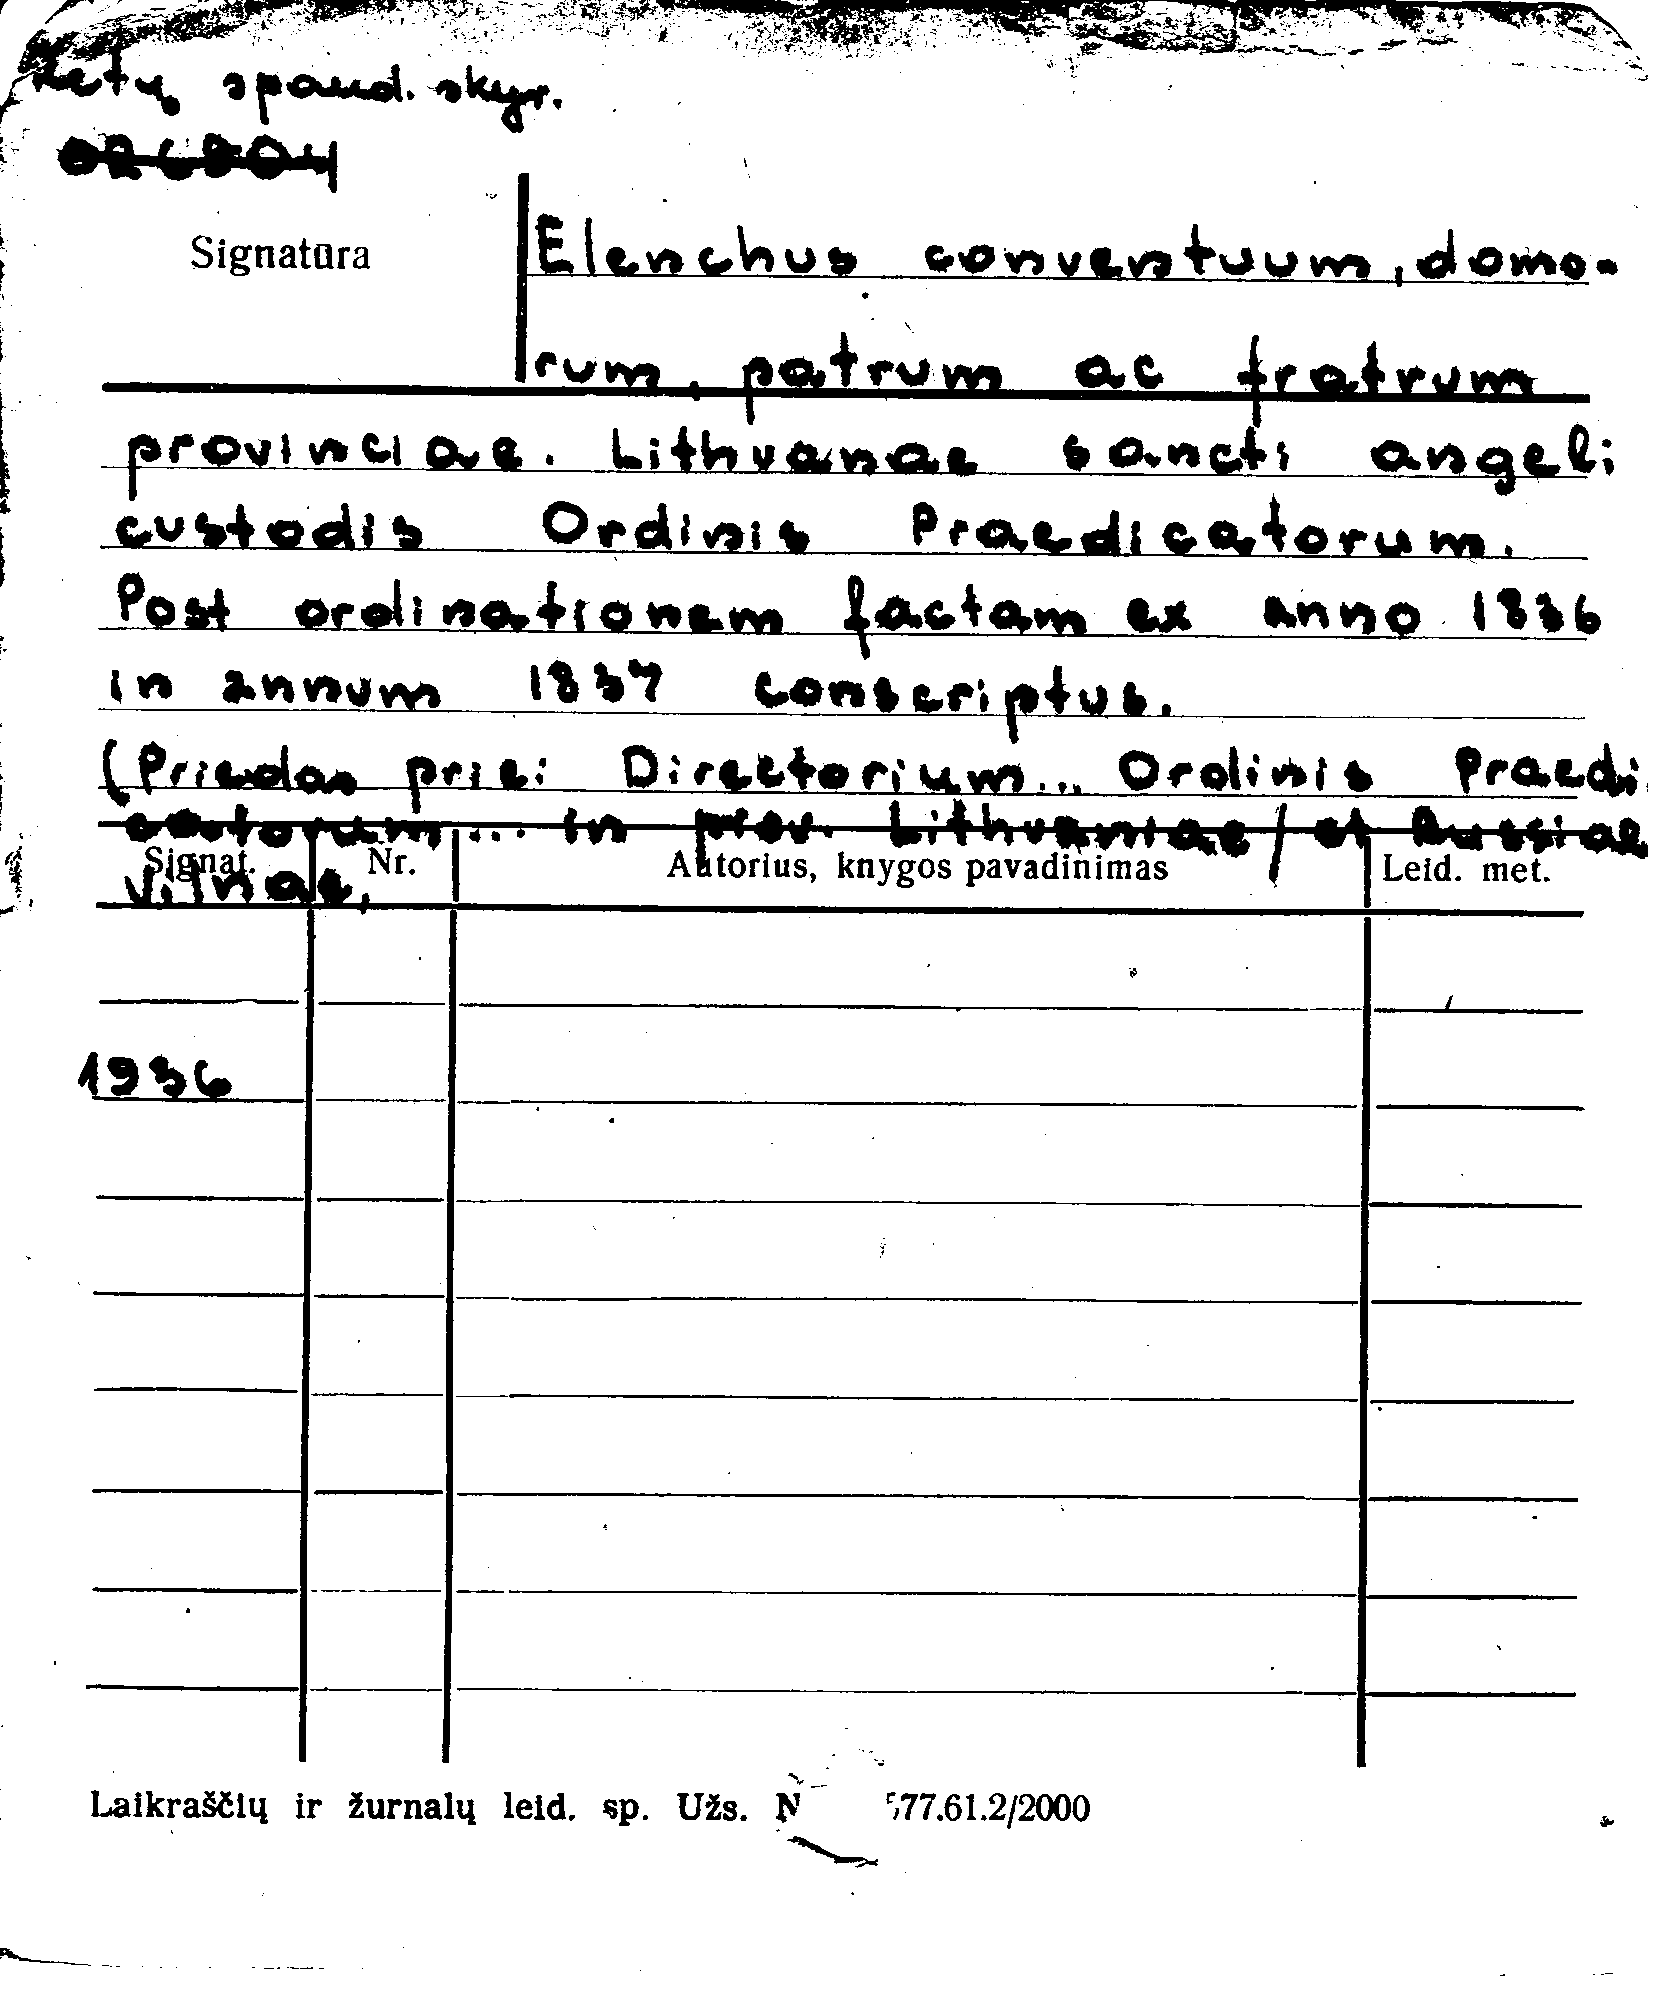 Retų spaud. skyr.
Signatūra
Elenchus conventuum, domo-
rum, patrum ac fratrum
provinciae. Lithvanae sancti angeli
custodis Ordinis Praedicatorum.
Post ordinationem factam ex anno 1836
in annum 1837 conscriptus.
(Priedas prie: Directorium... Ordinis Praedi
catorum... in prov. Lithvaniae / et Russiae
Vilnae,
Signat. Nr. Autorius, knygos pavadinimas Leid. met.
1936
Laikraščių ir žurnalų leid. sp. Užs. N 577.61.2/2000